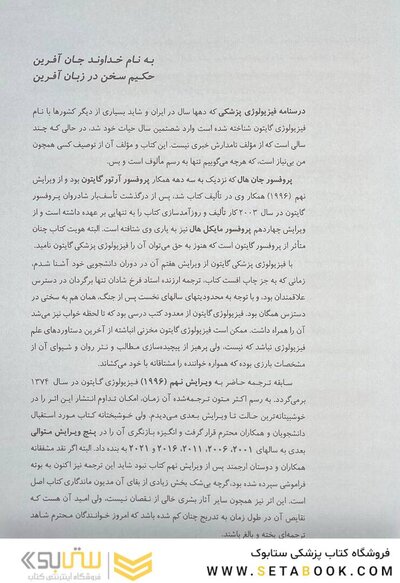 به نام خداوند جان آفرین
حکیم سخن در زبان آفرین
درسنامه فیزیولوژی پزشکی که دهها سال در ایران و شاید بسیاری از دیگر کشورها با نام
فیزیولوژی گایتون شناخته شده است وارد شصتمین سال حیات خود شد، در حالی که چند
سالی است که از مؤلف نامدارش خبری نیست. این کتاب و مؤلف آن از توصیف کسی همچون
من بی‌نیاز است، که هرچه می‌گوییم تنها به رسم مألوف است و بس.
پروفسور جان هال که نزدیک به سه دهه همکار پروفسور آرتور گایتون بود و از ویرایش
نهم (۱۹۹۶) همکار وی در تألیف کتاب شد، پس از درگذشت تأسف‌بار شادروان پروفسور
گایتون در سال ۲۰۰۳ کار تألیف و روزآمدسازی کتاب را به تنهایی بر عهده داشته است و از
ویرایش چهاردهم پروفسور مایکل هال نیز به یاری وی شتافته است. البته هویت کتاب چنان
متأثر از پروفسور گایتون است که هنوز به حق می‌توان آن را فیزیولوژی پزشکی گایتون نامید.
با فیزیولوژی پزشکی گایتون از ویرایش هفتم آن در دوران دانشجویی خود آشنا شدم،
زمانی که به جز چاپ افست کتاب، ترجمه ارزنده استاد فرخ شادان تنها برگردان در دسترس
علاقمندان بود، و با توجه به محدودیتهای سالهای نخست پس از جنگ، همان هم به سختی در
دسترس همگان بود. فیزیولوژی گایتون از معدود کتب درسی بود که تا لحظه خواب نیز می‌شد
آن را همراه داشت. ممکن است فیزیولوژی گایتون مخزنی انباشته از آخرین دستاوردهای علم
فیزیولوژی نباشد که نیست، ولی پرهیز از پیچیده‌سازی مطالب و نثر روان و شیوای آن از
مشخصات بارزی بوده که همواره خواننده را مشتاقانه با خود می‌کشاند.
سابقه ترجمه حاضر به ویرایش نهم (۱۹۹۶) فیزیولوژی گایتون در سال ۱۳۷۴
برمی‌گردد. به رسم اکثر متون ترجمه‌شده آن زمان، امکان تداوم انتشار این اثر را در
خوشبینانه‌ترین حالت تا ویرایش بعدی می‌دیدم. ولی خوشبختانه کتاب مورد استقبال
دانشجویان و همکاران محترم قرار گرفت و انگیزه بازنگری آن را در پنج ویرایش متوالی
بعدی به سالهای ۲۰۰۱، ۲۰۰۶، ۲۰۱۱، ۲۰۱۶ و ۲۰۲۱ به بنده داد. البته اگر نقد مشفقانه
همکاران و دوستان ارجمند پس از ویرایش نهم کتاب نبود شاید این ترجمه نیز اکنون به بوته
فراموشی سپرده شده بود، گرچه بی‌شک بخش زیادی از بقای آن مدیون ماندگاری کتاب اصل
است. این اثر نیز همچون سایر آثار بشری خالی از نقصان نیست، ولی امید آن هست که
نقایص آن در طول زمان به تدریج چنان کم شده باشد که امروز خوانندگان محترم شاهد
ترجمه‌ای پخته و بالغ باشند.
ستابوک
فروشگاه اینترنتی کتاب
فروشگاه کتاب پزشکی ستابوک
WWW.SETABOOK.COM